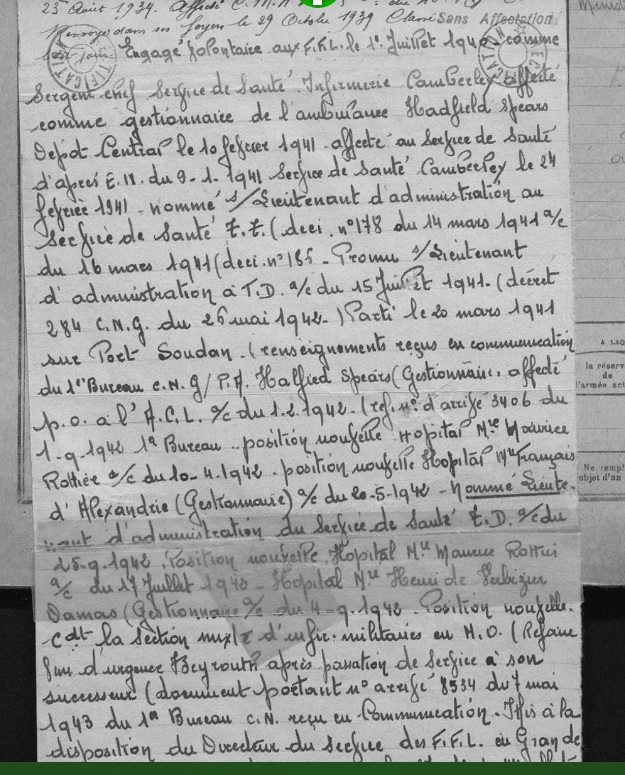 25 Août 1939. Affecté C.M.A
Renvoyé dans ses foyers le 29 Octobre 1939 Classé Sans Affectation
Engagé volontaire aux F.F.L. le 1er Juillet 1940 comme
Sergent chef Service de Santé Infirmerie Camberley affecté
comme gestionnaire de l'ambulance Hadfield Spears
Depot Central le 10 février 1941 - affecté au Service de Santé
d'après E.M. du 9-1-1941 Service de Santé Camberley le 24
février 1941 - nommé s/Lieutenant d'administration au
Service de Santé T.T. (deci. n°178 du 14 mars 1941 a/c
du 16 mars 1941 (deci. n° 185 - Promu s/Lieutenant
d'administration à T.D. a/c du 15 Juillet 1941. (décret
284 C.N.G. du 26 mai 1942.) Parti le 20 mars 1941
sur Port Soudan. (renseignements reçus en communication
du 1er Bureau C.N.G/ P.A. Halfied Spears (Gestionnaire. affecté
p.o. à l'A.C.L. a/c du 1.2.1942. (ref. n° d'arrivé 3406 du
1-9-1942 1er Bureau - position nouvelle Hopital Mre Maurice
Rottiée a/c du 10-4-1942 - position nouvelle Hopital Mre français
d'Alexandrie (Gestionnaire) a/c du 20-5-1942 - Nommé Lieute-
nant d'administration du Service de Santé T.D. a/c du
25-9-1942. Position nouvelle. Hopital Mre Maurice Rottié
a/c du 17 Juillet 1942 - Hopital Mre Henri de
Damas (Gestionnaire a/c du 4-9-1942. Position nouvelle.
Cdt la Section mixte d'infir. militaires en M.O. (
d'urgence Beyrouth après passation de Service à son
successeur (document portant n° arrivé 8534 du 7 mai
1943 du 1er Bureau C.N. reçu en Communication. Mis à la
disposition du Directeur du Service des F.F.L. en Grande
A LAQ
la réserve
de
l'armée act
Ne rempl
objet d'un